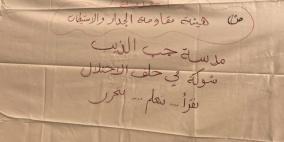 هيئة مقاومة الجدار والاستيطان
مدرسة جب الذيب
شوكة في حلق الاحتلال
نقرأ... نتعلم... نتحرر